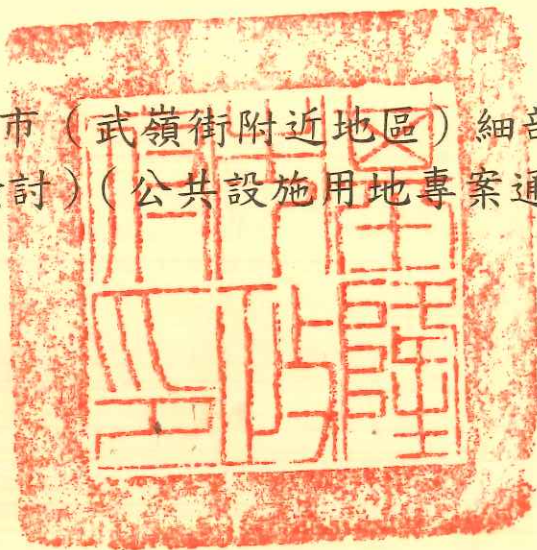 市（武嶺街附近地區）細部
討）（公共設施用地專案通
基隆市政府印